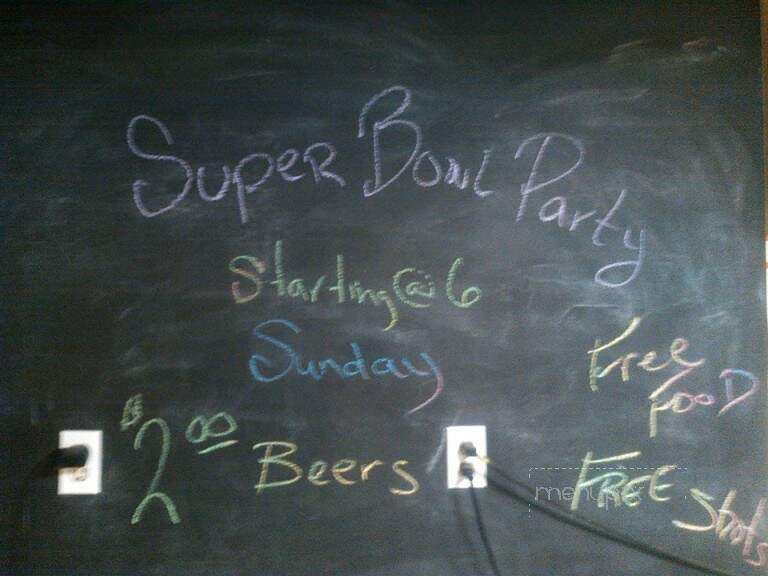 Super Bowl Party
Starting@6
Sunday
$2.00 Beers
Free
Food
FREE
Shots
menupix